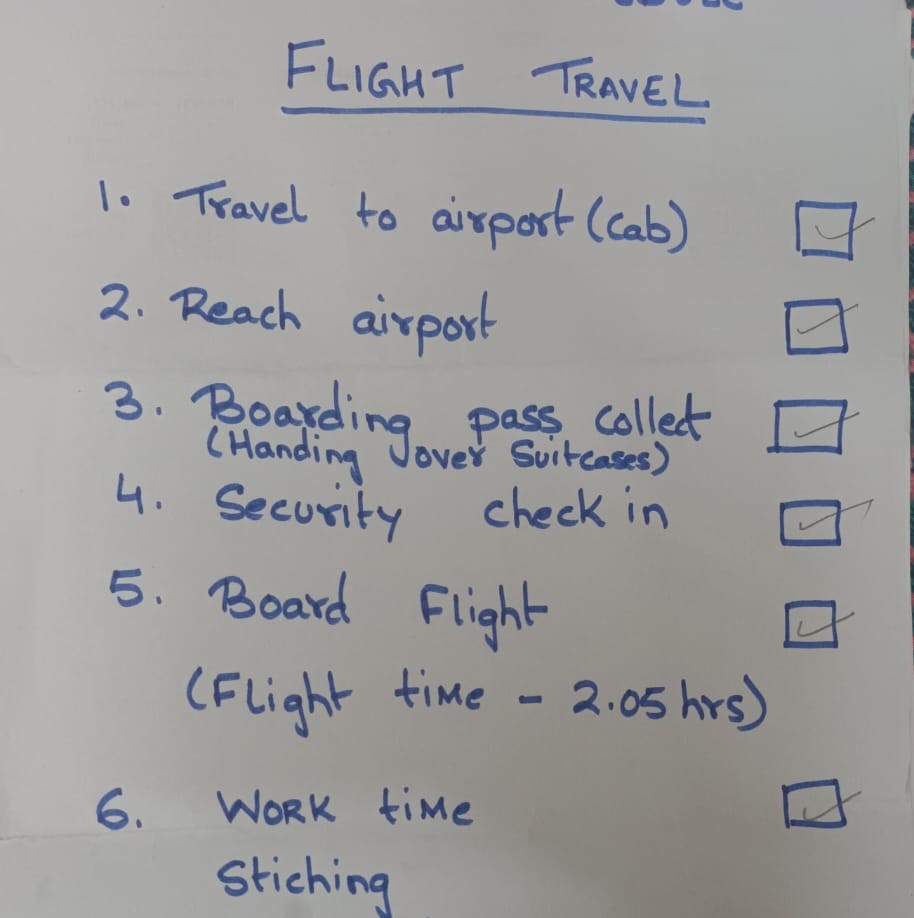 FLIGHT TRAVEL
1. Travel to airport (Cab)
2. Reach airport
3. Boarding pass collect
(Handing over Suitcases)
4. Security check in
5. Board Flight
(Flight time - 2.05 hrs)
6. WORK time
Stiching